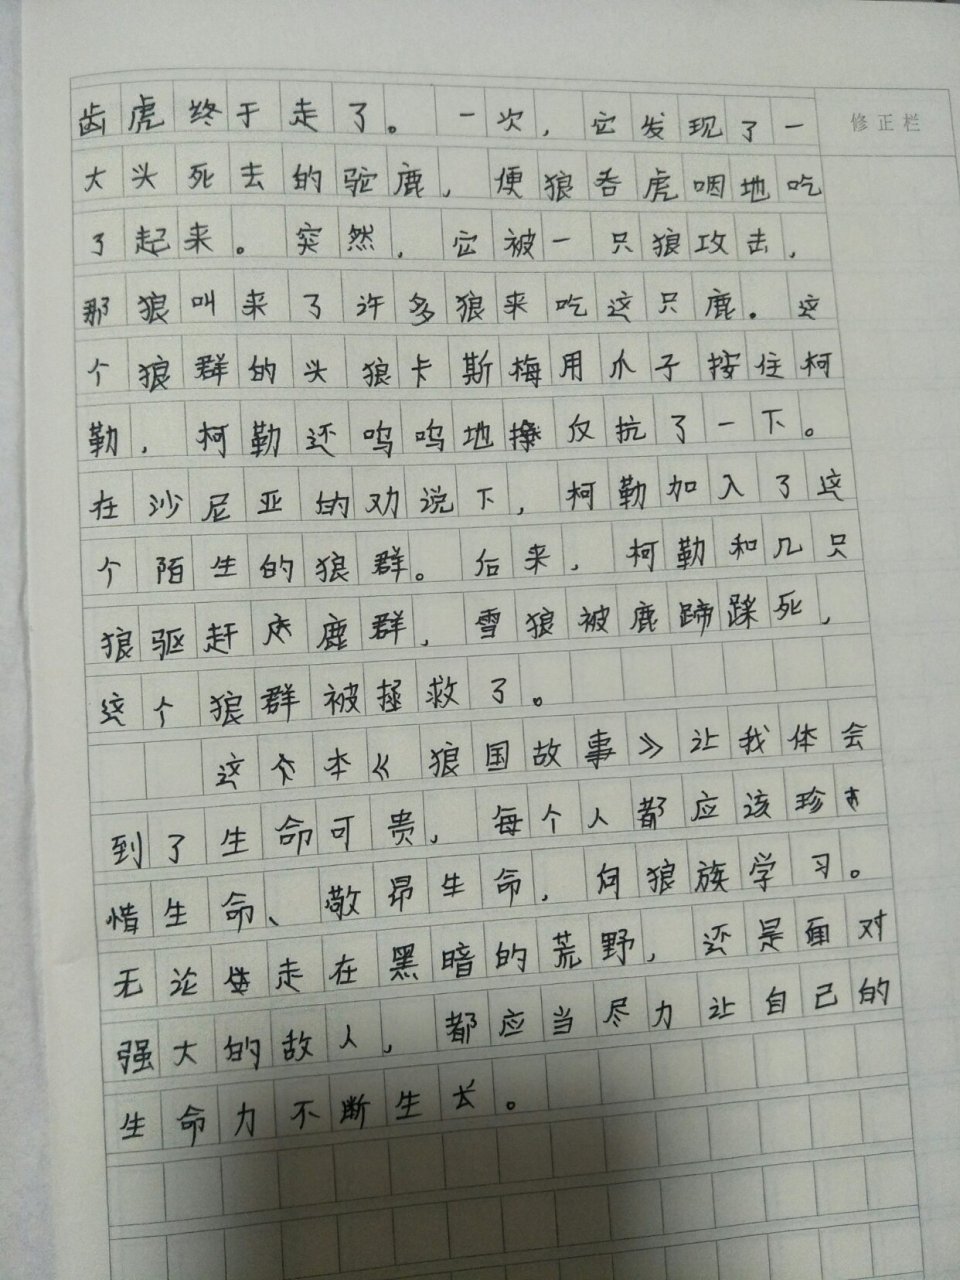 齿虎终于走了。一次，它发现了一
修正栏
大头死去的驼鹿，便狼吞虎咽地吃
了起来。突然，它被一只狼攻击，
那狼叫来了许多狼来吃这只鹿。这
个狼群的头狼卡斯梅用爪子按住柯
勒，柯勒还呜呜地挣反抗了一下。
在沙尼亚的劝说下，柯勒加入了这
个陌生的狼群。后来，柯勒和几只
狼驱赶鹿群，雪狼被鹿蹄踩死，
这个狼群被拯救了。
这个本《狼国故事》让我体会
到了生命可贵，每个人都应该珍
惜生命、敬昂生命，向狼族学习。
无论走在黑暗的荒野，还是面对
强大的敌人，都应当尽力让自己的
生命力不断生长。